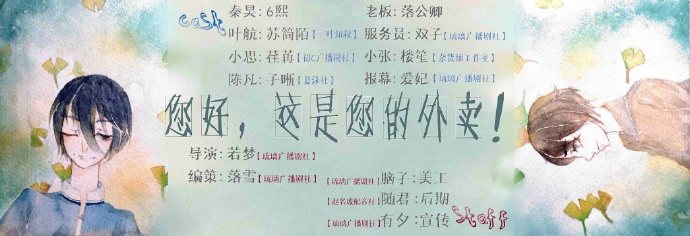 cast
秦昊: 6熙 老板: 落公卿
叶航: 苏简陌【一叶知秋】 服务员: 双子【琉璃广播剧社】
小思: 荏苒【初C广播剧社】 小张: 楼笙【杂货铺工作室】
陈凡: 子晰【夏沫社】 报幕: 爱妃【琉璃广播剧社】
您好，这是您的外卖！
导演: 若梦【琉璃广播剧社】
编策: 落雪【琉璃广播剧社】 【琉璃广播剧社】脑子: 美工
随君: 后期
【琉璃广播剧社】有夕: 宣传
Staff